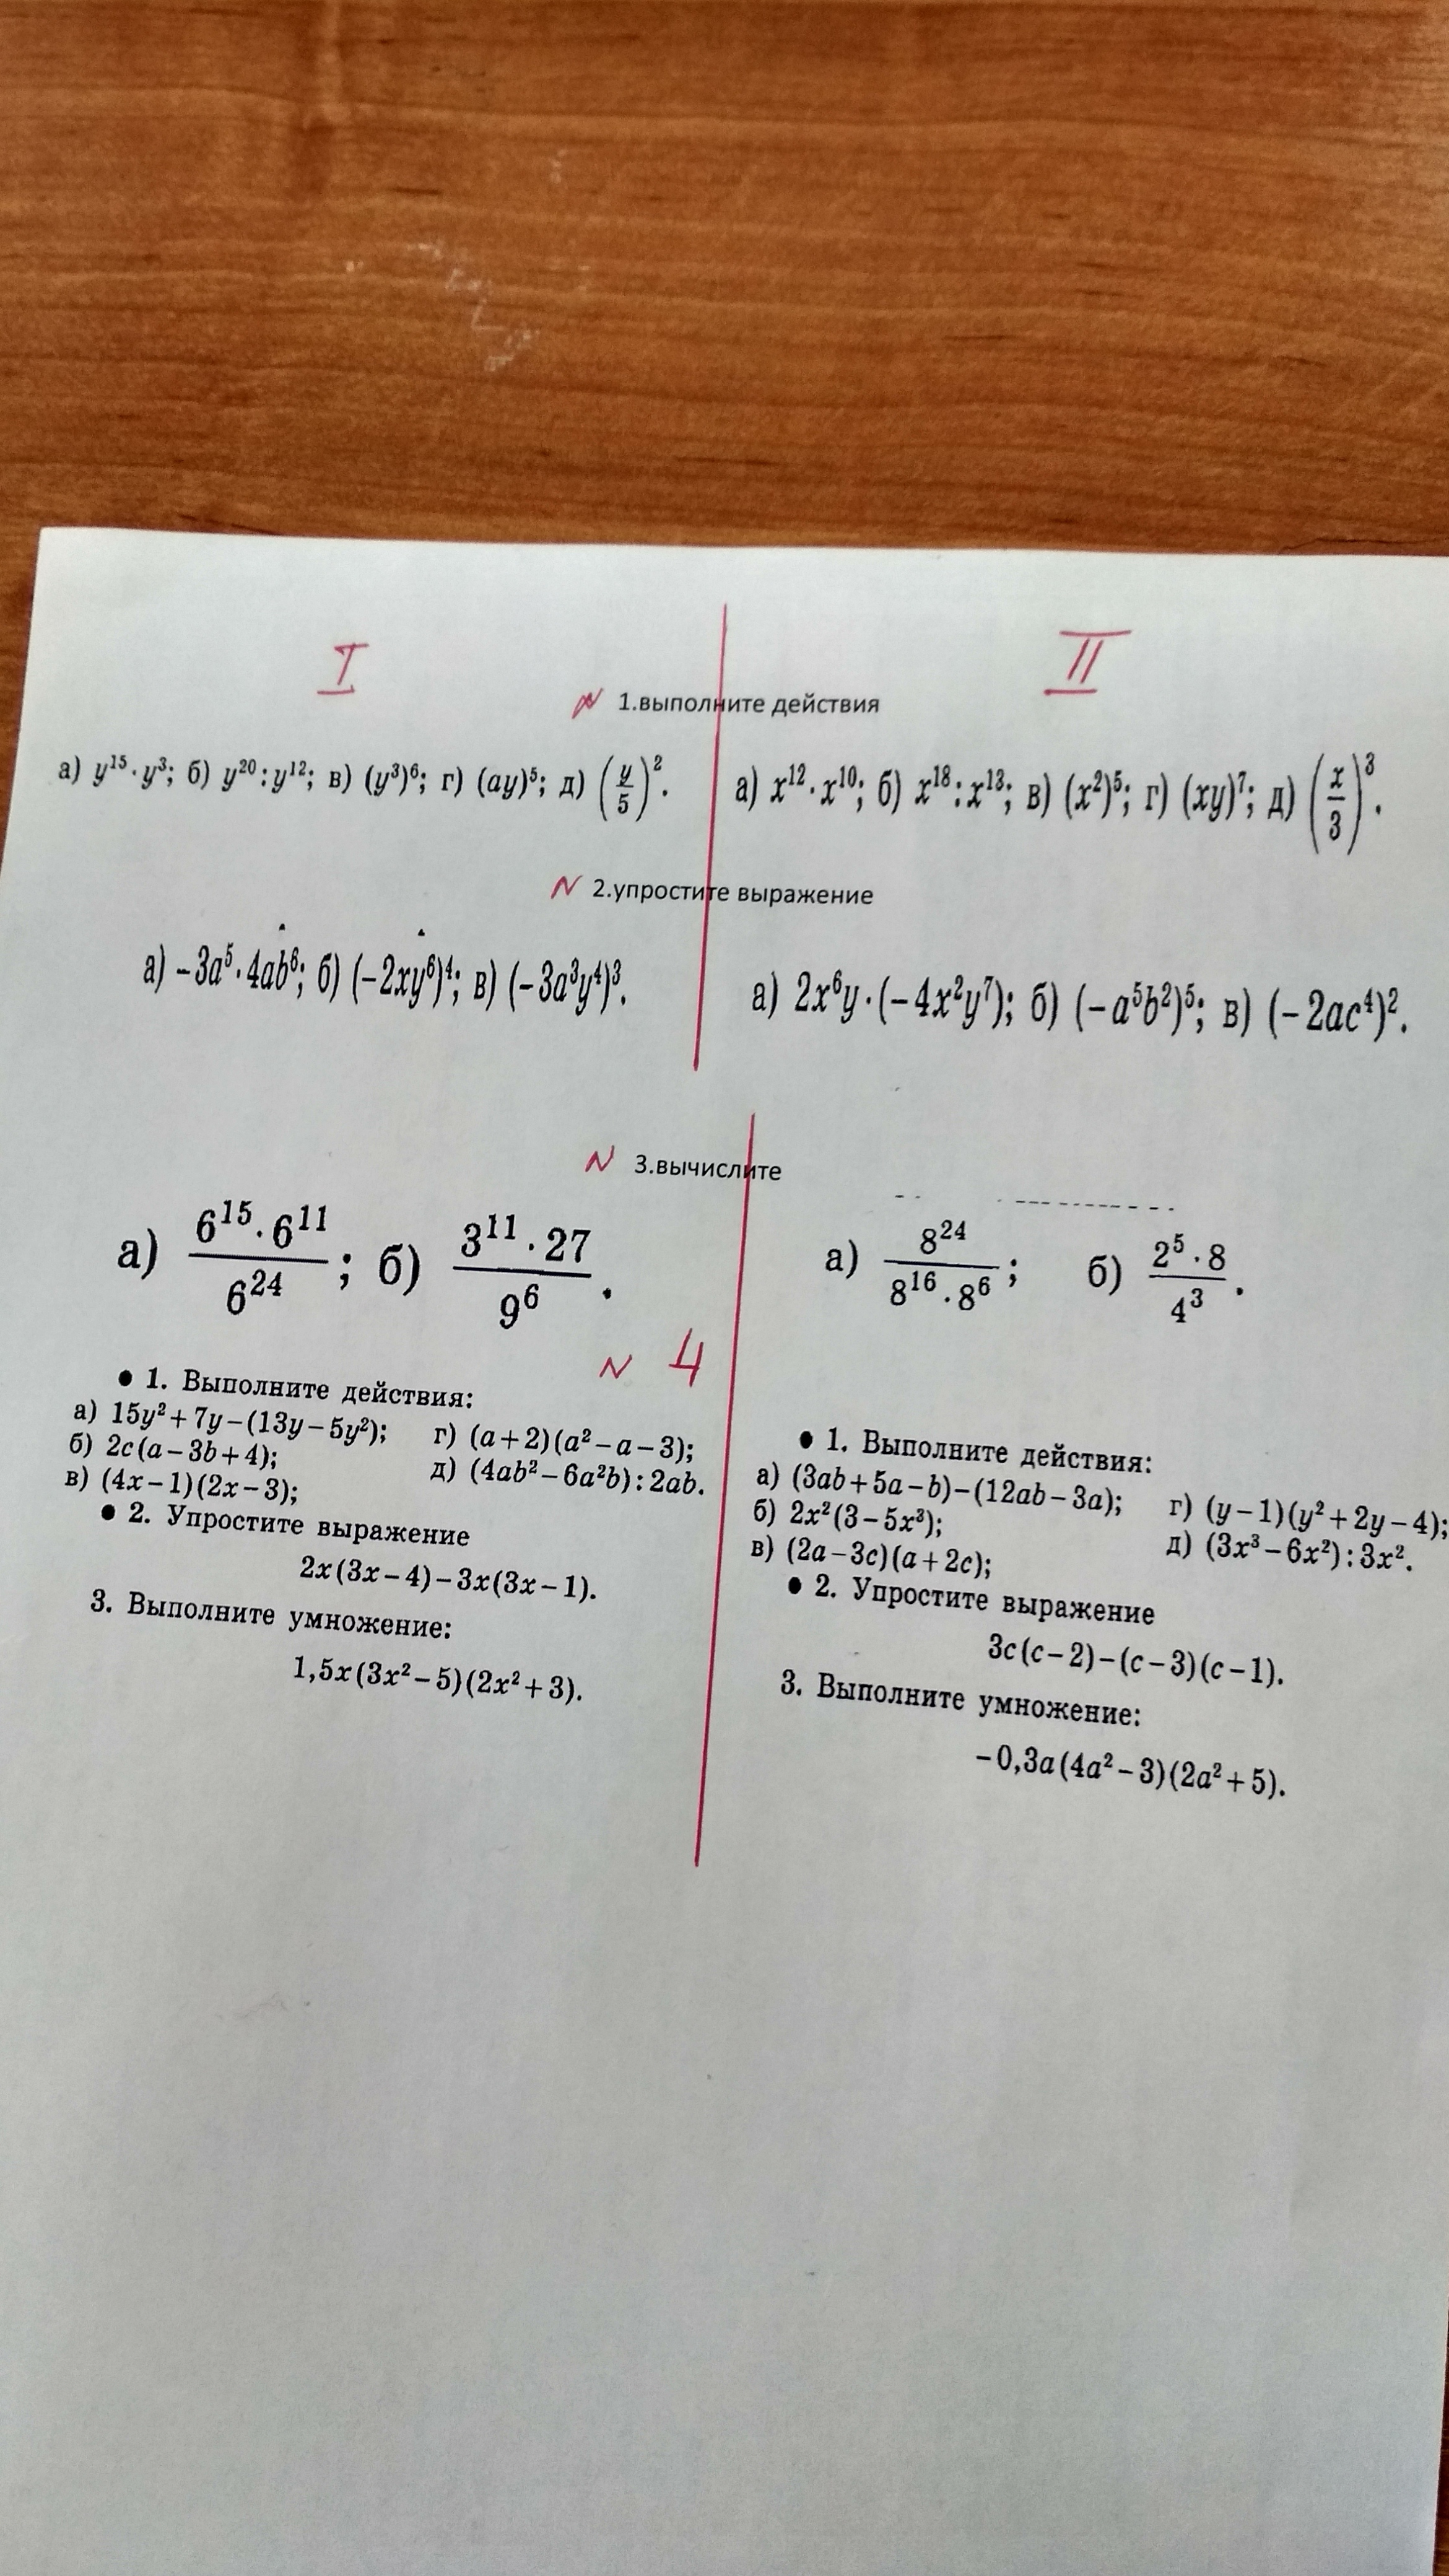 I II
N 1.выполните действия
а) y¹⁵·y³; б) y²⁰:y¹²; в) (y³)⁶; г) (ay)⁵; д) (y/5)².
а) x¹²·x¹⁰; б) x¹⁸:x¹³; в) (x²)⁵; г) (xy)⁷; д) (x/3)³.
N 2.упростите выражение
а) –3a⁵·4ab⁶; б) (–2xy⁶)⁴; в) (–3a³y⁴)³.
а) 2x⁶y·(–4x²y⁷); б) (–a⁵b²)⁵; в) (–2ac⁴)².
N 3.вычислите
а) 6¹⁵·6¹¹/6²⁴; б) 3¹¹·27/9⁶.
а) 8²⁴/8¹⁶·8⁶; б) 2⁵·8/4³.
N 4
• 1. Выполните действия:
а) 15y²+7y–(13y–5y²); г) (a+2)(a²–a–3);
б) 2c(a–3b+4); д) (4ab²–6a²b):2ab.
в) (4x–1)(2x–3);
• 2. Упростите выражение
2x(3x–4)–3x(3x–1).
3. Выполните умножение:
1,5x(3x²–5)(2x²+3).
• 1. Выполните действия:
а) (3ab+5a–b)–(12ab–3a); г) (y–1)(y²+2y–4);
б) 2x²(3–5x³); д) (3x³–6x²):3x².
в) (2a–3c)(a+2c);
• 2. Упростите выражение
3c(c–2)–(c–3)(c–1).
3. Выполните умножение:
–0,3a(4a²–3)(2a²+5).